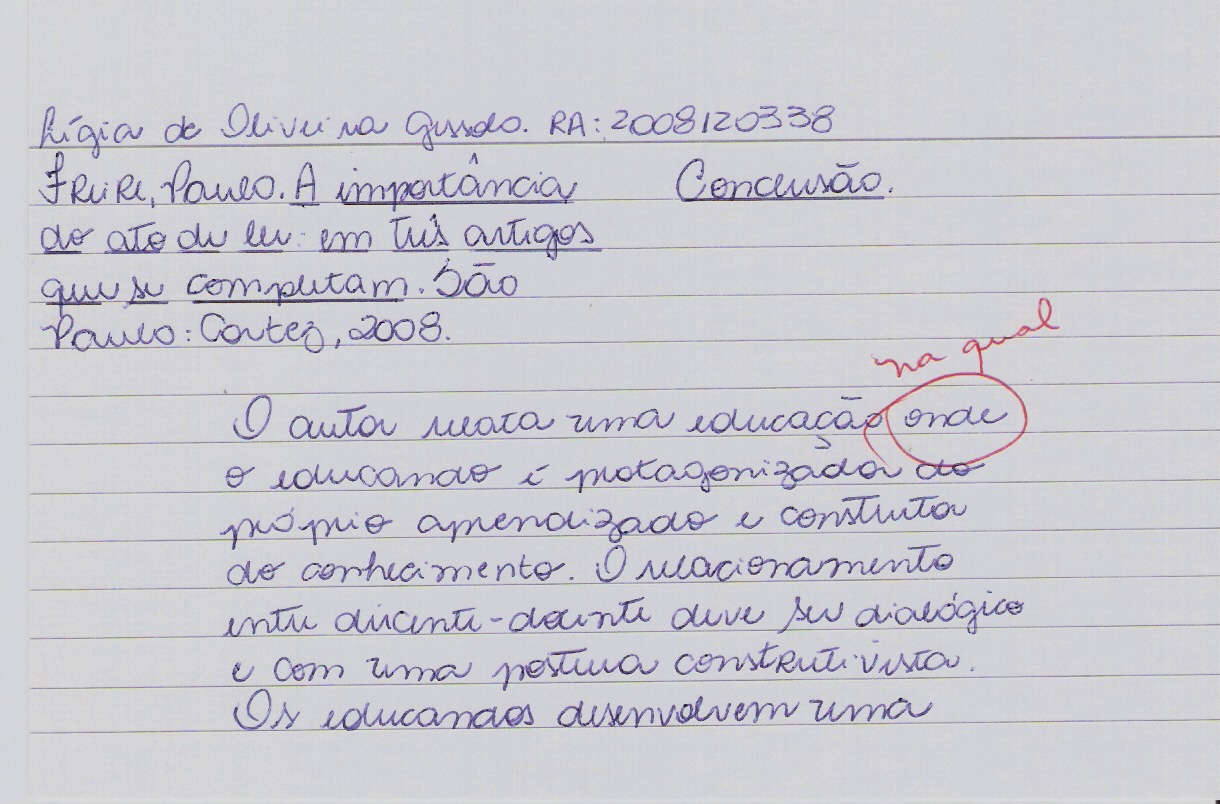 Lígia de Oliveira RA: 2008120338
FREIRE, Paulo. A importância Conclusão.
do ato de ler: em três artigos
que se completam. São
Paulo: Cortez, 2008.
na qual
O autor relata uma educação onde
o educando é protagonizador do
próprio aprendizado e construtor
do conhecimento. O relacionamento
entre discente-docente deve ser dialógico
e com uma postura construtivista.
Os educandos desenvolvem uma